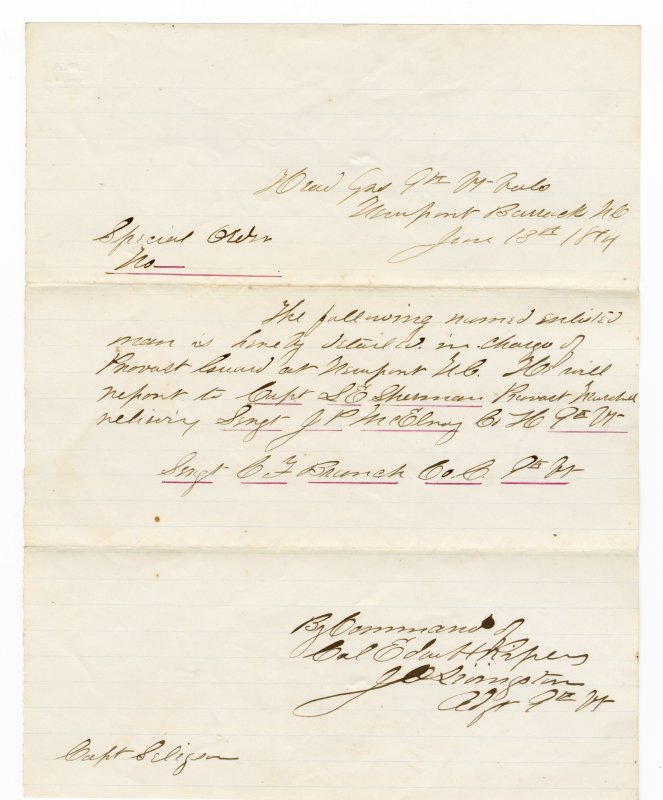 Head Qrs 9th Vt Vols
Newport Barrack NC
June 13th 1864
Special Order
No
The following named enlisted
man is hereby detailed in charge of
Provost Guard at Newport N.C. He will
report to Capt S E Sherman Provost Marshal
relieving Sergt J P McElroy Co H 9th Vt
Sergt C F Branch Co. C. 9th Vt
By Command of
Col Edwd H Ripley
J C Livingston
Adjt 9th Vt
Capt Seligson